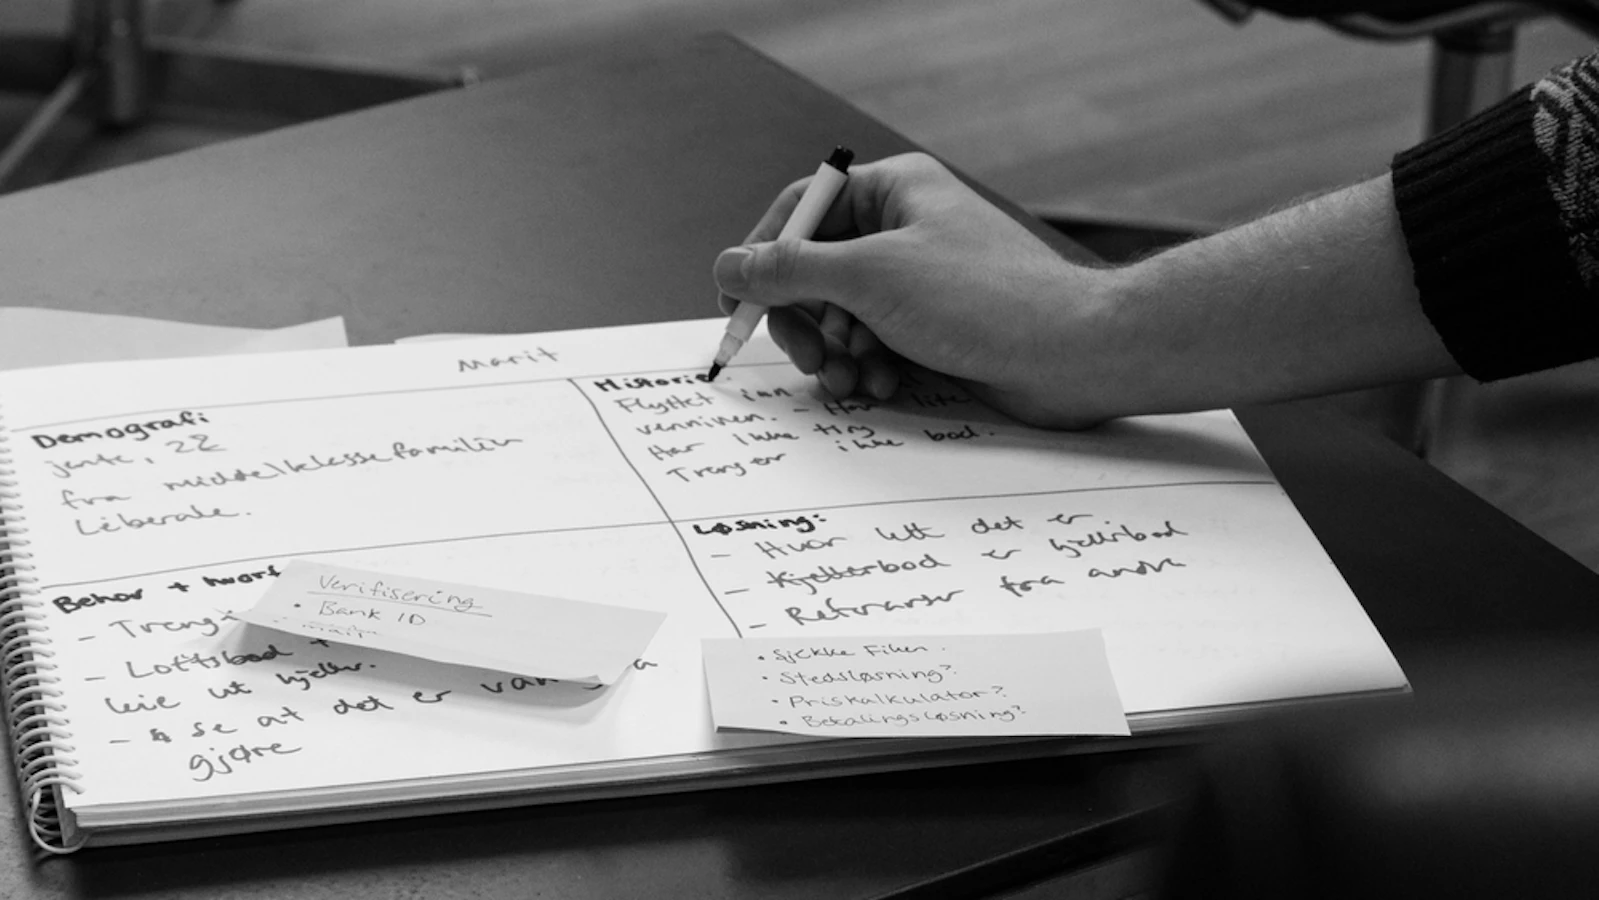 Marit
Demografi
jente, 22
fra middelklassefamilien
Liberale.
Historie:
Flyttet inn
venninen. - Har lite
Har ikke
Trenger ikke bod.
Behov +
- Treng
- Loftsbod +
leie ut kjeller.
- å se at det er
gjøre
Verifisering
• Bank ID
Løsning:
- Hvor lett det er
- Kjellerbod er kjellerbod
- Referanser fra andre
• Sjekke Filen.
• Stedsløsning?
• Priskalkulator?
• Betalingsløsning?